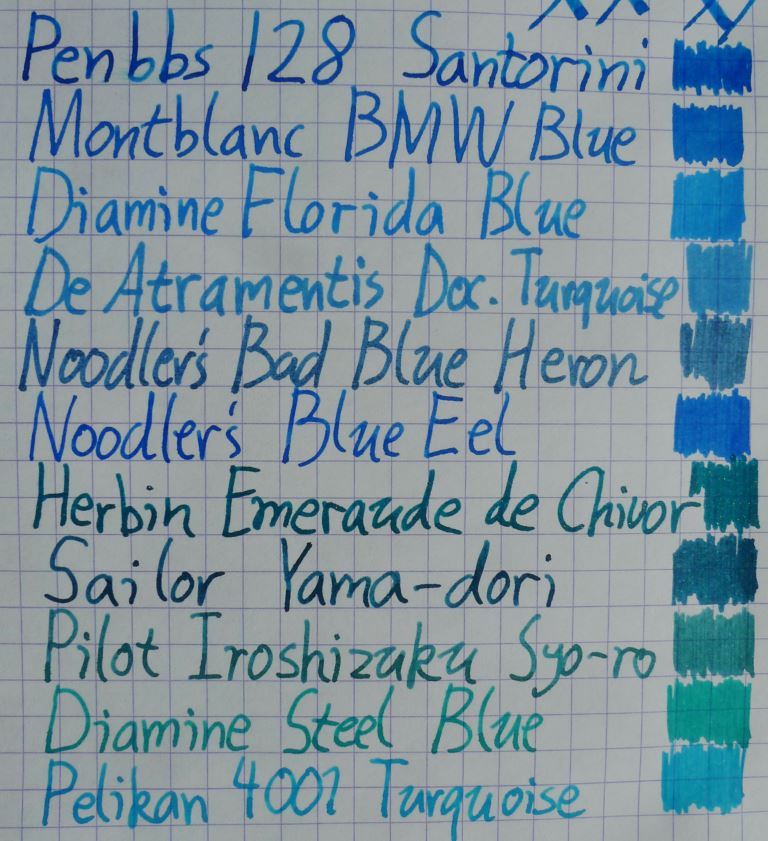 Penbbs 128 Santorini
Montblanc BMW Blue
Diamine Florida Blue
De Atramentis Doc. Turquoise
Noodler's Bad Blue Heron
Noodler's Blue Eel
Herbin Emeraude de Chivor
Sailor Yama-dori
Pilot Iroshizuku Syo-ro
Diamine Steel Blue
Pelikan 4001 Turquoise